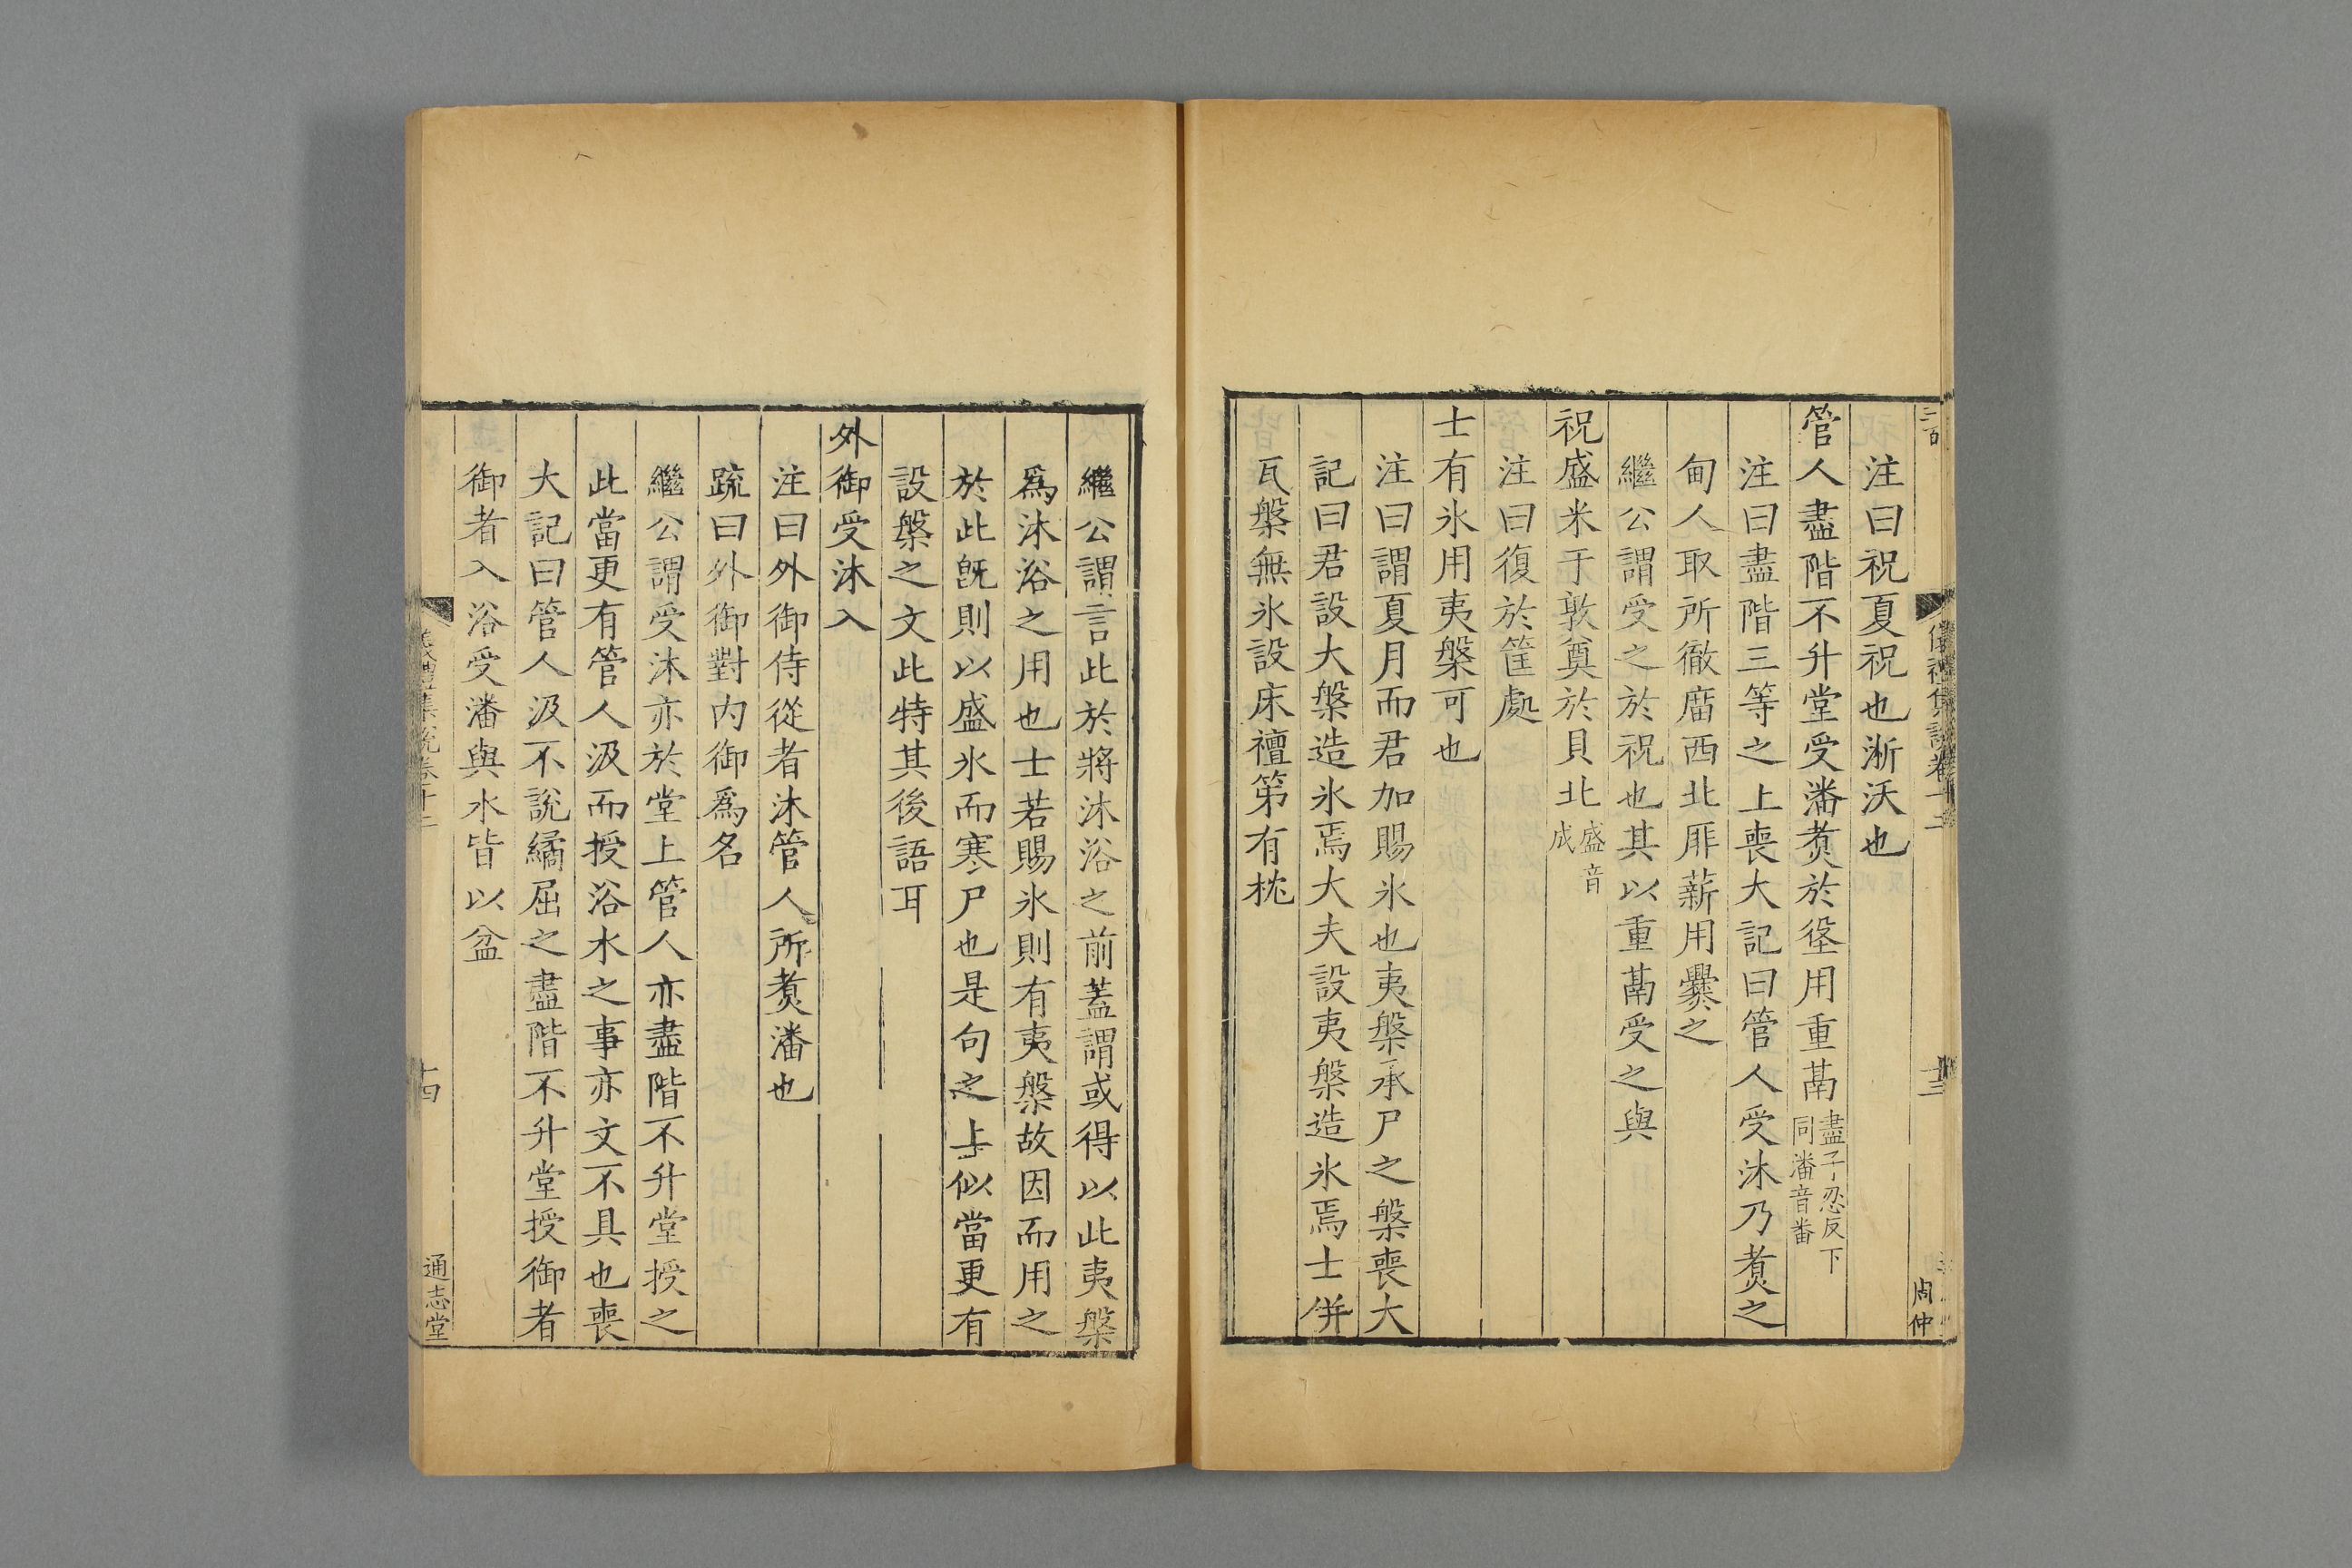 注曰祝夏祝也淅沃也
管人盡階不升堂受潘煑於垼用重鬲盡子忍反下同潘音番
注曰盡階三等之上喪大記曰管人受沐乃煑之
甸人取所徹廟西北厞薪用爨之
繼公謂受之於祝也其以重鬲受之與
祝盛米于敦奠於貝北盛音成
注曰復於筐處
士有氷用夷槃可也
注曰謂夏月而君加賜氷也夷槃承尸之槃喪大
記曰君設大槃造氷焉大夫設夷槃造氷焉士併
瓦槃無氷設床襢笫有枕
儀禮集說卷十二
十三
周仲
繼公謂言此於將沐浴之前蓋謂或得以此夷槃
爲沐浴之用也士若賜氷則有夷槃故因而用之
於此旣則以盛氷而寒尸也是句之上似當更有
設槃之文此特其後語耳
外御受沐入
注曰外御侍從者沐管人所煑潘也
疏曰外御對內御爲名
繼公謂受沐亦於堂上管人亦盡階不升堂授之
此當更有管人汲而授浴水之事亦文不具也喪
大記曰管人汲不說繘屈之盡階不升堂授御者
御者入浴受潘與水皆以盆
儀禮集說卷十二
十四
通志堂